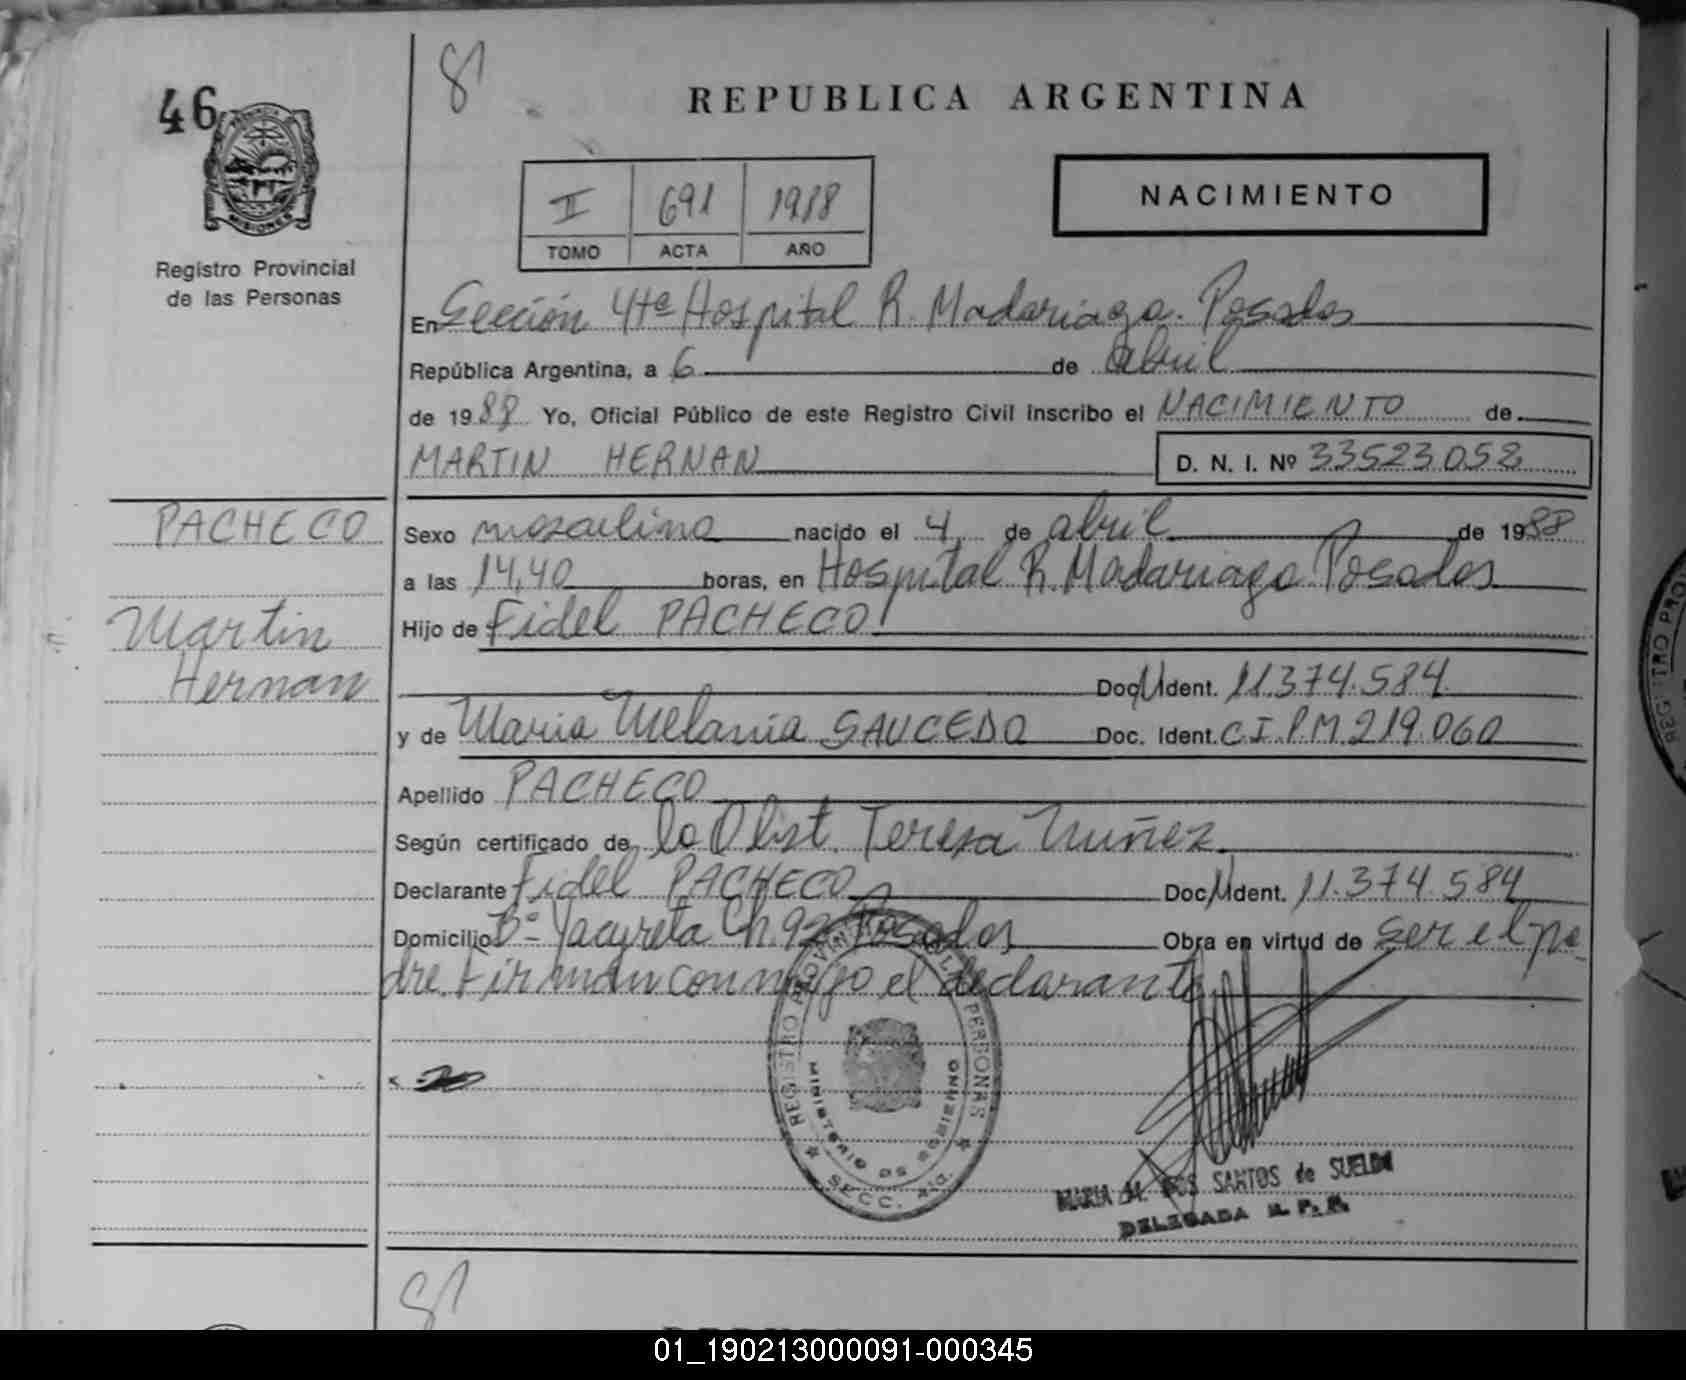 46
REPUBLICA ARGENTINA
II 691 1988
TOMO ACTA AÑO
NACIMIENTO
MISIONES
Registro Provincial
de las Personas
En Sección 4ta Hospital R. Madariaga. Posadas
República Argentina, a 6 de abril
de 1988 Yo, Oficial Público de este Registro Civil inscribo el NACIMIENTO de
MARTIN HERNAN D. N. I. Nº 33523052
PACHECO
Martin
Hernan
Sexo masculino nacido el 4 de abril de 1988
a las 14,40 horas, en Hospital R. Madariaga Posadas
Hijo de Fidel PACHECO
Doc. Ident. 11.374.584
y de Maria Melania SAUCEDO Doc. Ident. C I. P M. 219.060
Apellido PACHECO
Según certificado de la Obst. Teresa Nuñez
Declarante Fidel PACHECO Doc. Ident. 11.374.584
Domicilio Bº Yacyreta Ch. 92 Posadas Obra en virtud de ser el pa-
dre. Firman conmigo el declarante
REGISTRO PROVINCIAL PERSONAS
MINISTERIO DE GOBIERNO
SECC. 4ta.
MARIA DOS SANTOS de SUELDO
DELEGADA R. P. P.
01_190213000091-000345